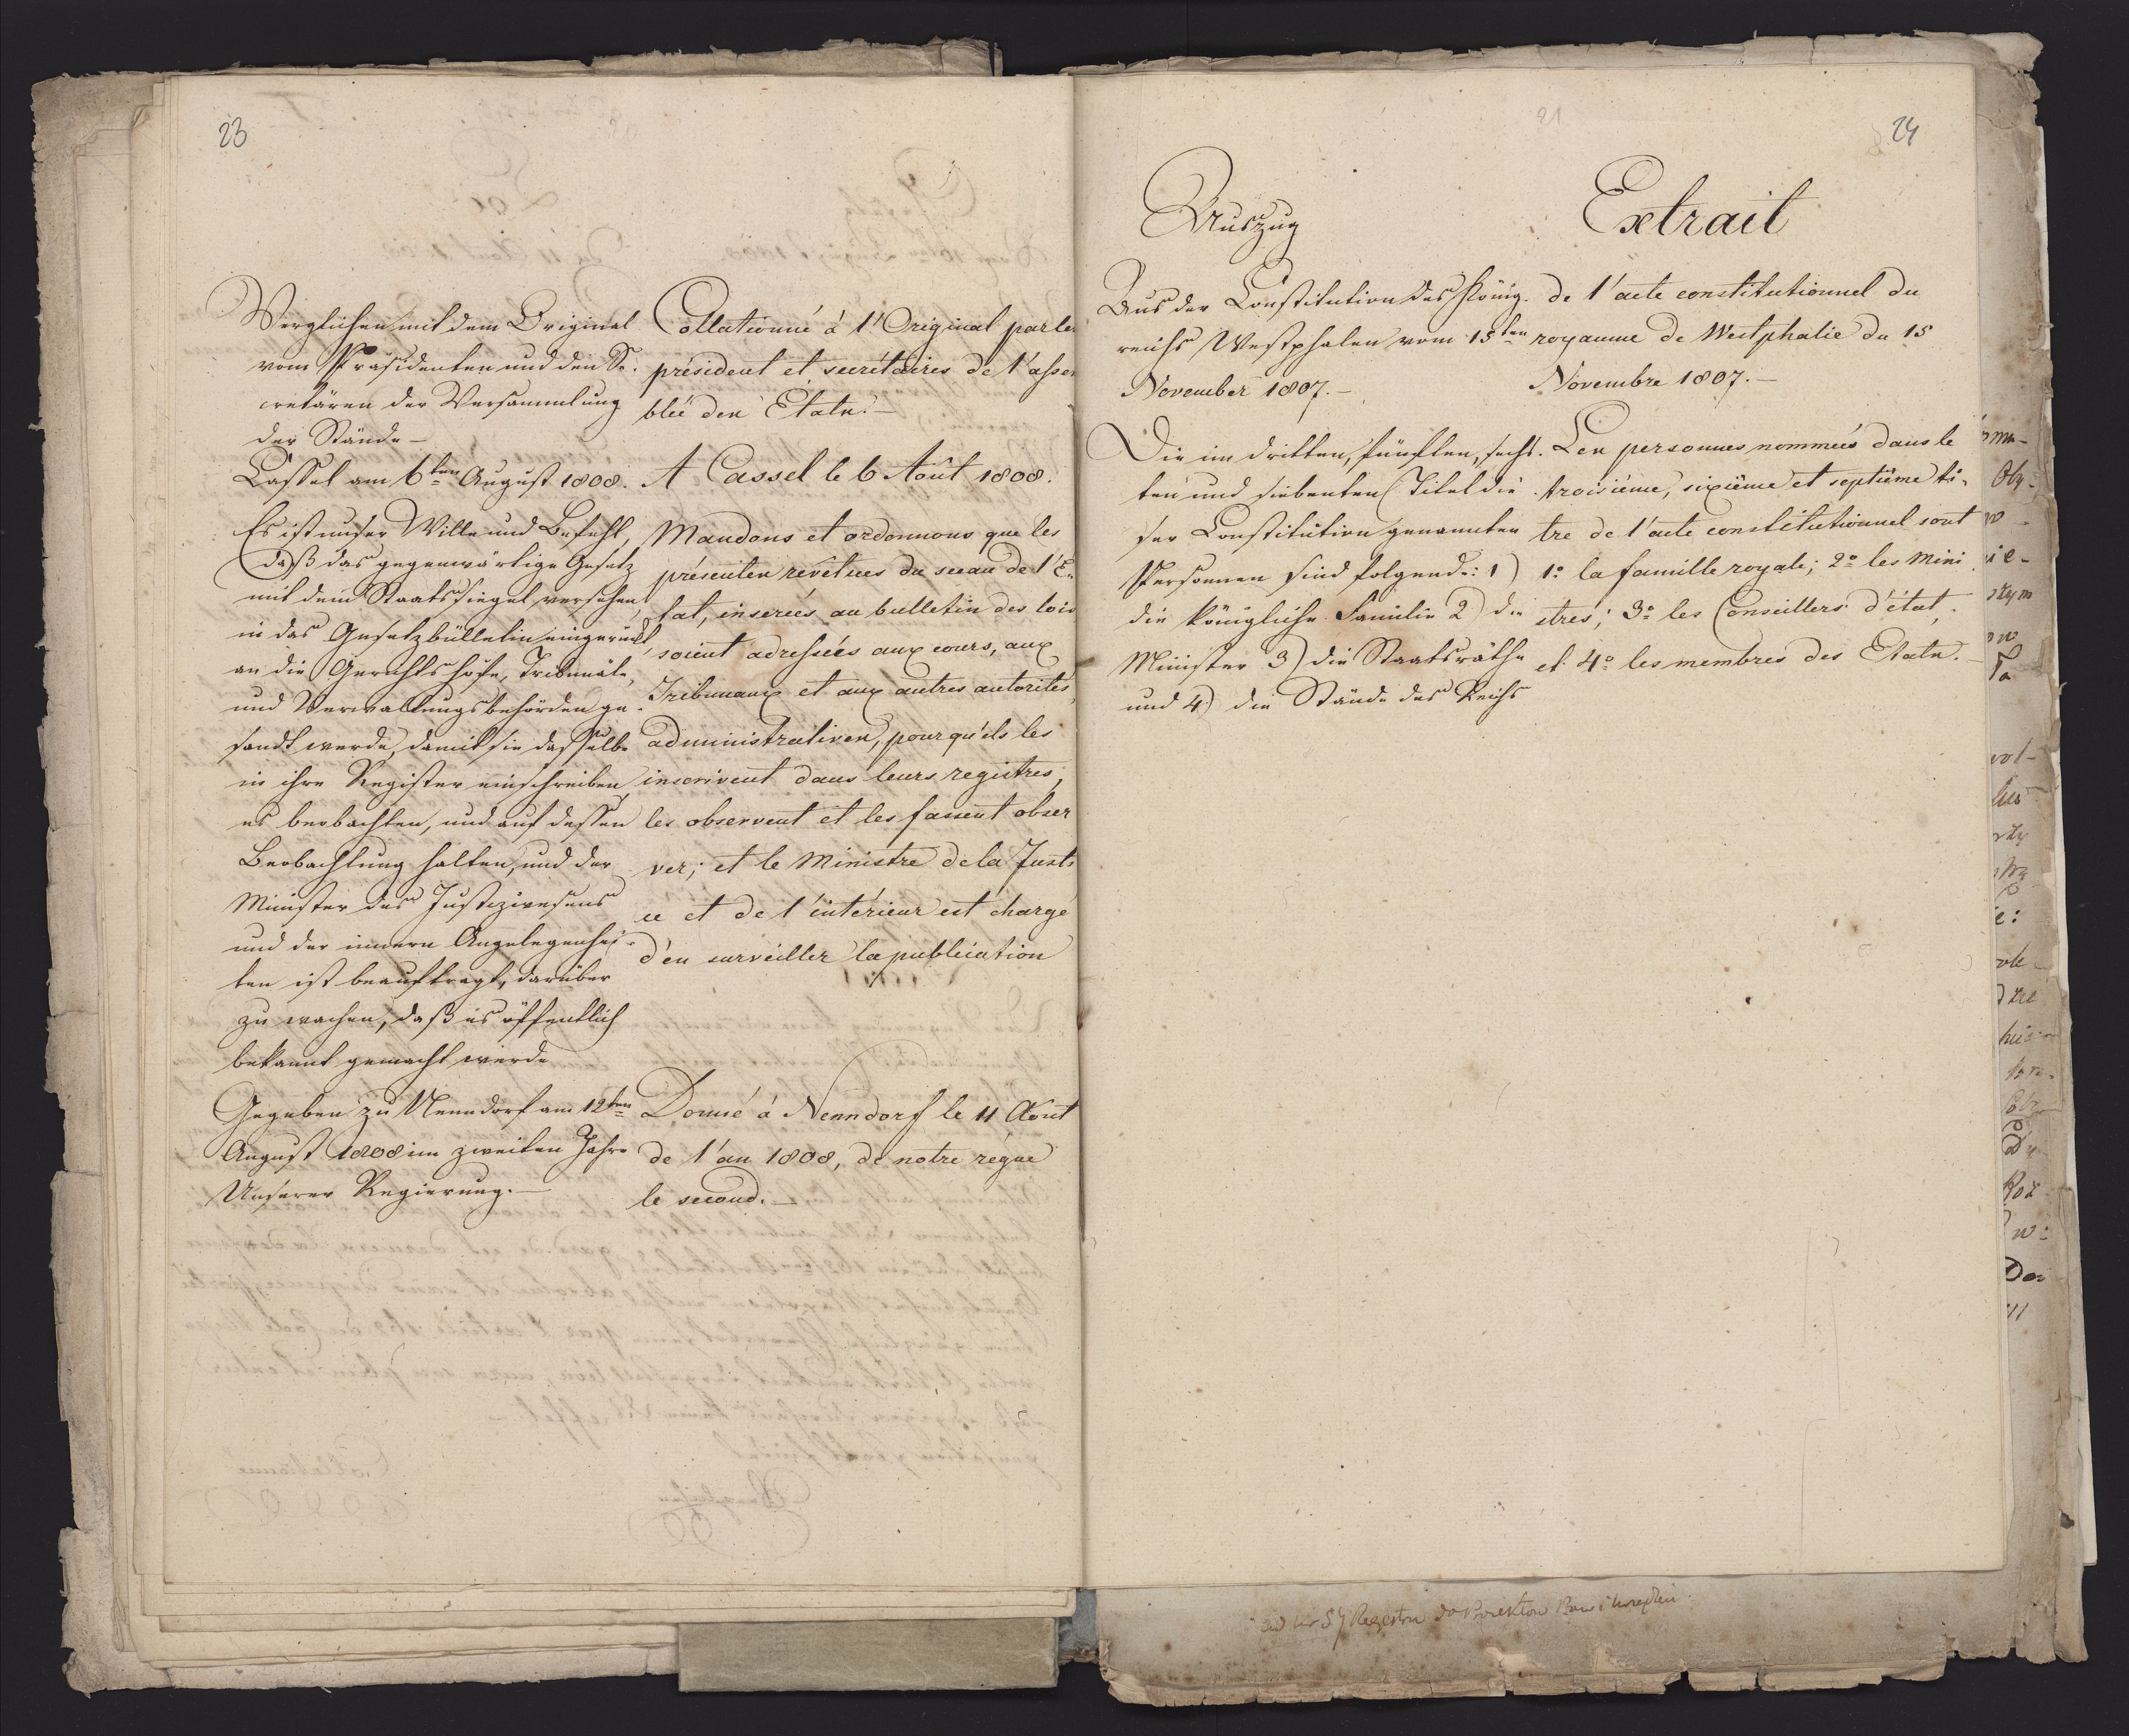 23
Verglichen mit dem Original
vom Präsidenten und den Se-
cretären der Versammlung
der Stände —
Cassel am 6ten August 1808.
Es ist unser Wille und Befehl,
daß das gegenwärtige Gesetz
mit dem Staatssiegel versehen
in das Gesetzbülletin eingerückt,
an die Gerichtshöfe, Tribunäle,
und Verwaltungsbehörden ge-
sandt werde, damit sie dasselbe
in ihre Register einschreiben,
es beobachten, und auf dessen
Beobachtung halten, und der
Minister des Justizwesens
und der innern Angelegenhei-
ten ist beauftragt, darüber
zu wachen, daß es öffentlich
bekannt gemacht werde
Gegeben zu Nenndorf am 12ten
August 1808 im zweiten Jahre
Unserer Regierung. —
Collationné à l'Original par le
président et secrétaires de l'assem
blée den Etats. —
A Cassel le 6 Août 1808.
Mandons et ordonnons que les
présenten revêtues du sceau de l'E-
tat, inserées au bulletin des lois
soient adressées aux cours, aux
Tribunaux et aux autres autorités
administrativen, pour qu'ils les
inscrivent dans leurs registres,
les observent et les fassent obser
ver; et le Ministre de la Justi
ce et de l'intérieur est chargé
d'en surveiller la publication
Donné à Nenndorf le 11 Août
de l'an 1808, de notre règne
le second. —
21
24
Auszug
Aus der Constitution des König-
reichs Westphalen vom 15ten
November 1807. —
Die im dritten, fünften, sechs-
ten und siebenten Titel die-
ser Constitution genannten
Personen sind folgende: 1)
die königliche Familie 2) die
Minister 3) die Staatsräthe
und 4) die Stände des Reichs
Extrait
de l'acte constitutionnel du
royaume de Westphalie du 15
Novembre 1807. —
Les personnes nommées dans le
troisième, sixième et septième ti-
tre de l'acte constitutionnel sont
1º la famille royale; 2º les Mini
stres; 3º les Conseillers d'état,
et 4º les membres des Etats. —